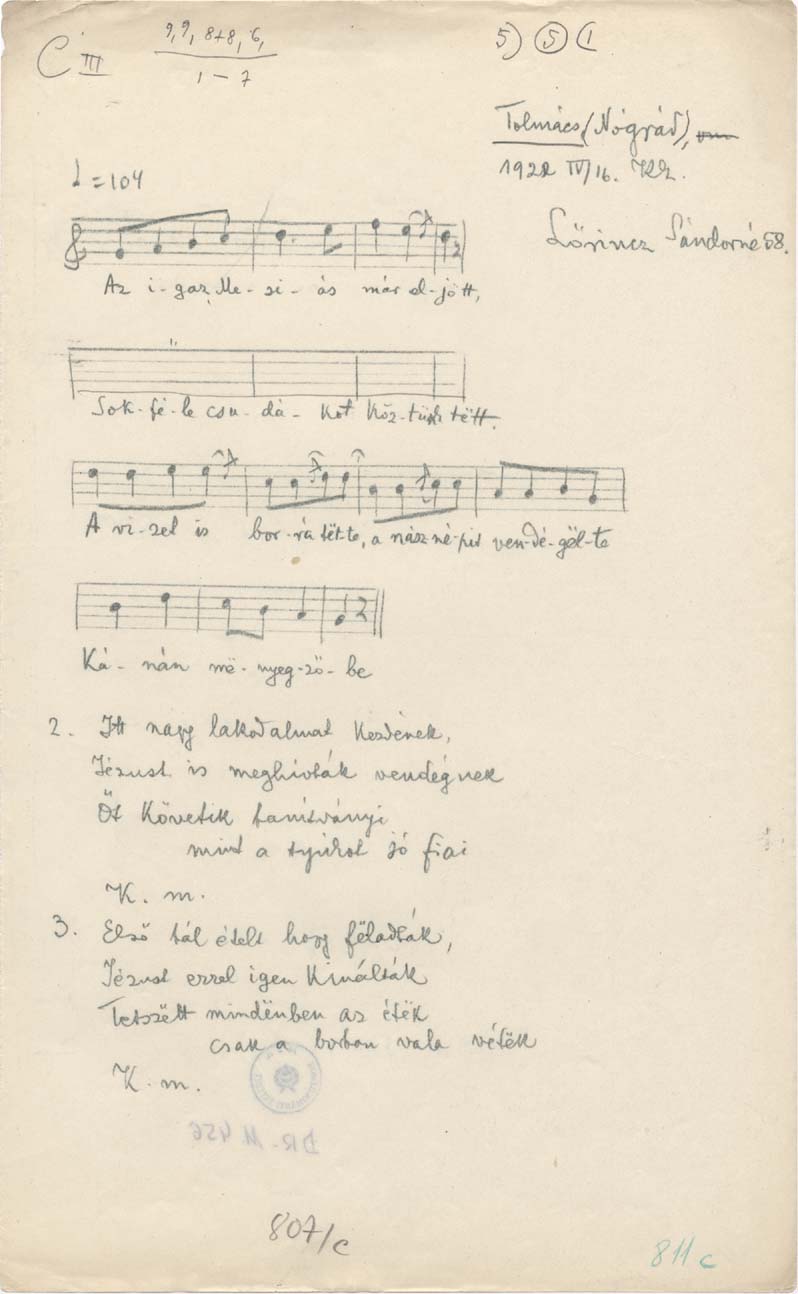 C III
9, 9, 8+8, 6,
1 – 7
5) ⑤ (1
Tolmács (Nógrád),
1922 IV/16. KZ.
♩ = 104
Lőrincz Sándorné 58.
Az i-gaz Me-si-ás már el-jött,
Sok-fé-le csu-dá-kot köz-tünk tëtt.
A vi-zet is bor-rá tët-te, a nász-né-pit ven-dé-gël-te
Ká-nán më-nyeg-ző-be
2. Itt nagy lakodalmat kezdének,
Jézust is meghívták vendégnek
Őt követik tanítványi
mint a tyúkot jó fiai
K. m.
3. Első tál ételt hogy föladták,
Jézust errel igen kinálták
Tetszëtt mindënben az étëk
csak a borban vala vétëk
K. m.
DR. M 456
807/c
811 c